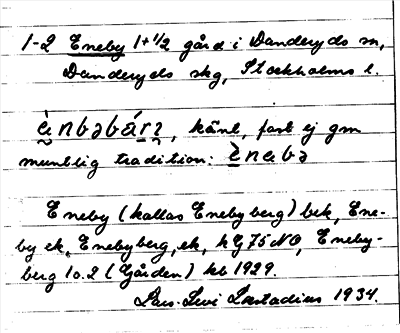 1-2 Eneby 1+1/2 gård i Danderyds sn,
Danderyds skg, Stockholms l.
ènbəbárɪ, känt, fast ej gm
muntlig tradition: ènəbə
Eneby (kallas Enebyberg) bek, Ene-
by ek, Enebyberg, ek, hG75NO, Eneby-
berg 1o.2 (Gården) kb 1929.
Lars-Levi Læstadius 1934.